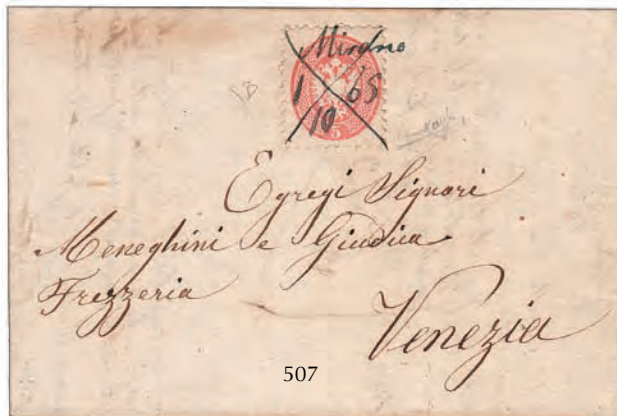 Mirano
1 65
10
5
Egregi Signori
Meneghini e Giudica
Frezzeria
Venezia
507